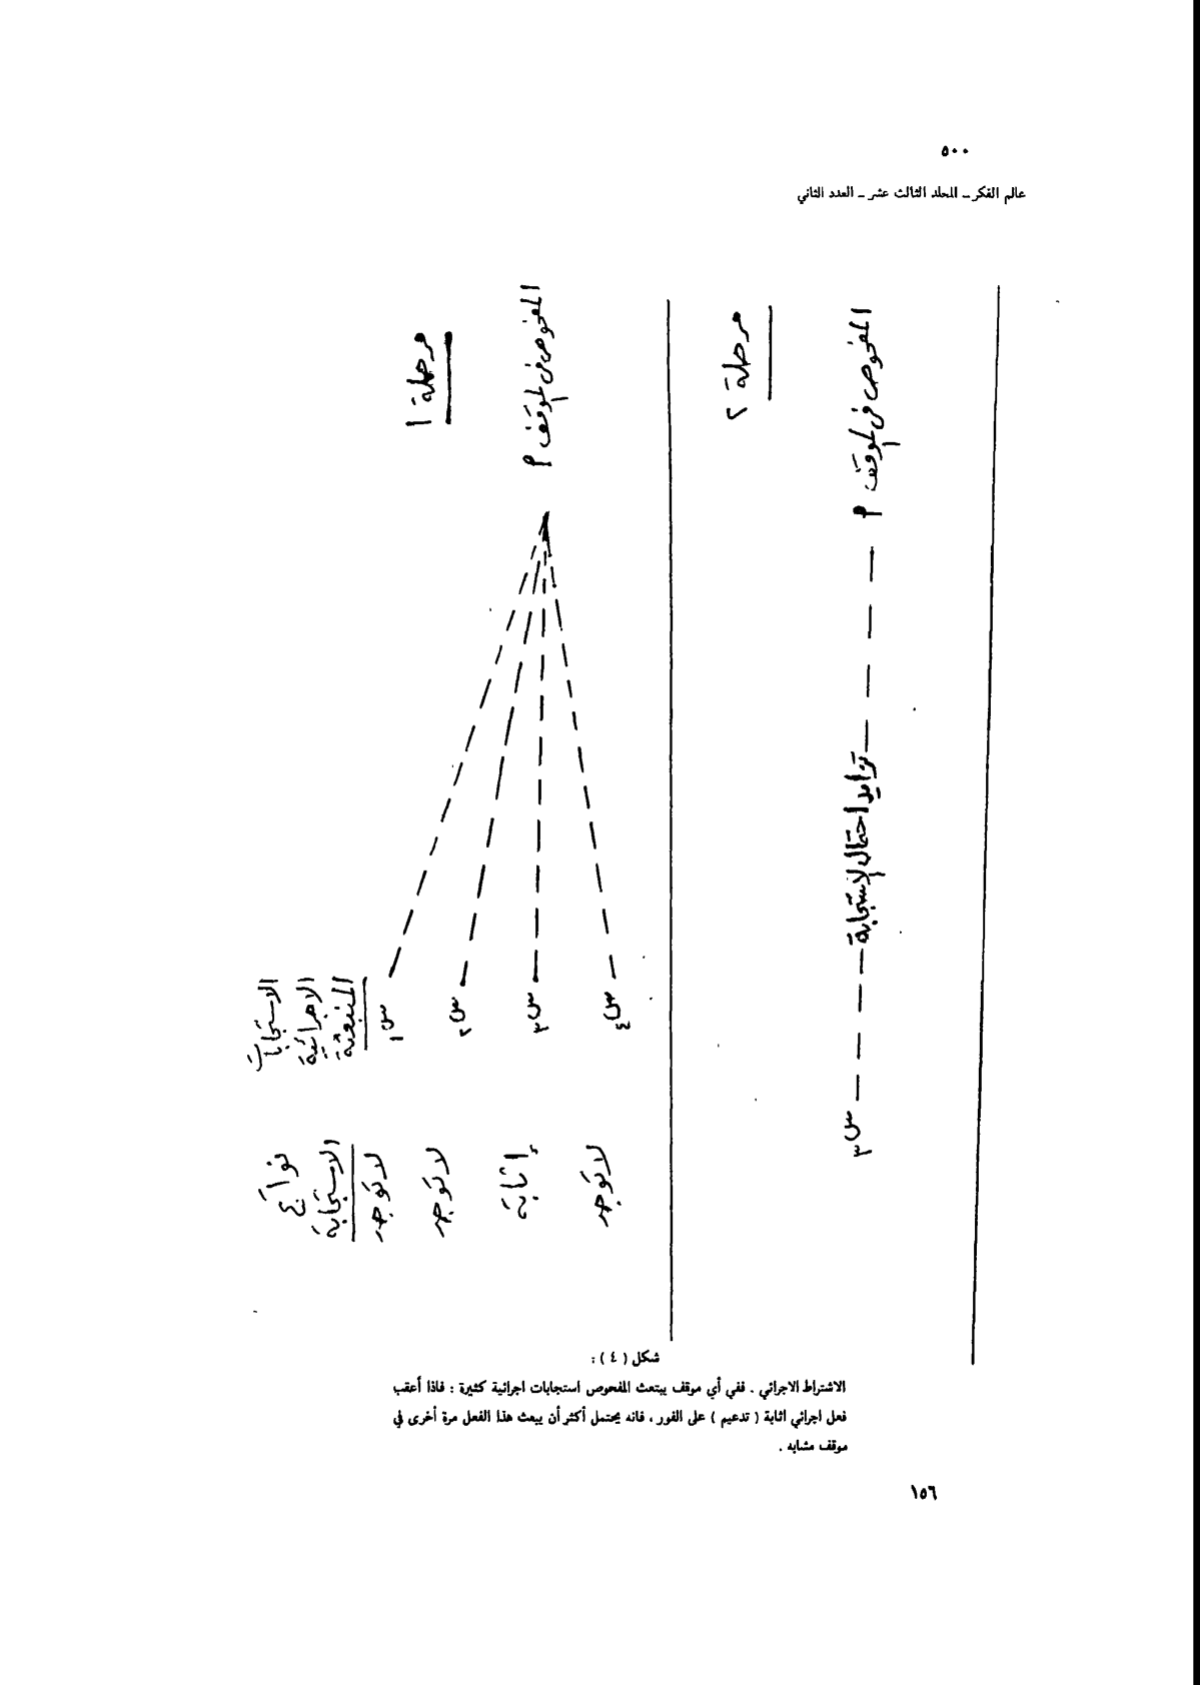 ٥٠٠
عالم الفكر ــ المجلد الثالث عشر ــ العدد الثاني
مرحلة ١
المفحوص في الموقف أ
الاستجابات
الاجرائية
المنبعثة
س١
س٢
س٣
س٤
نواتج
الاستجابة
لا توجد
لا توجد
إثابة
لا توجد
مرحلة ٢
المفحوص في الموقف أ
تزايد احتمال الاستجابة
س٣
شكل ( ٤ ) :
الاشتراط الاجرائي . ففي أي موقف يبتعث المفحوص استجابات اجرائية كثيرة : فاذا أعقب
فعل اجرائي اثابة ( تدعيم ) على الفور ، فانه يحتمل أكثر أن يبعث هذا الفعل مرة أخرى في
موقف مشابه .
١٥٦